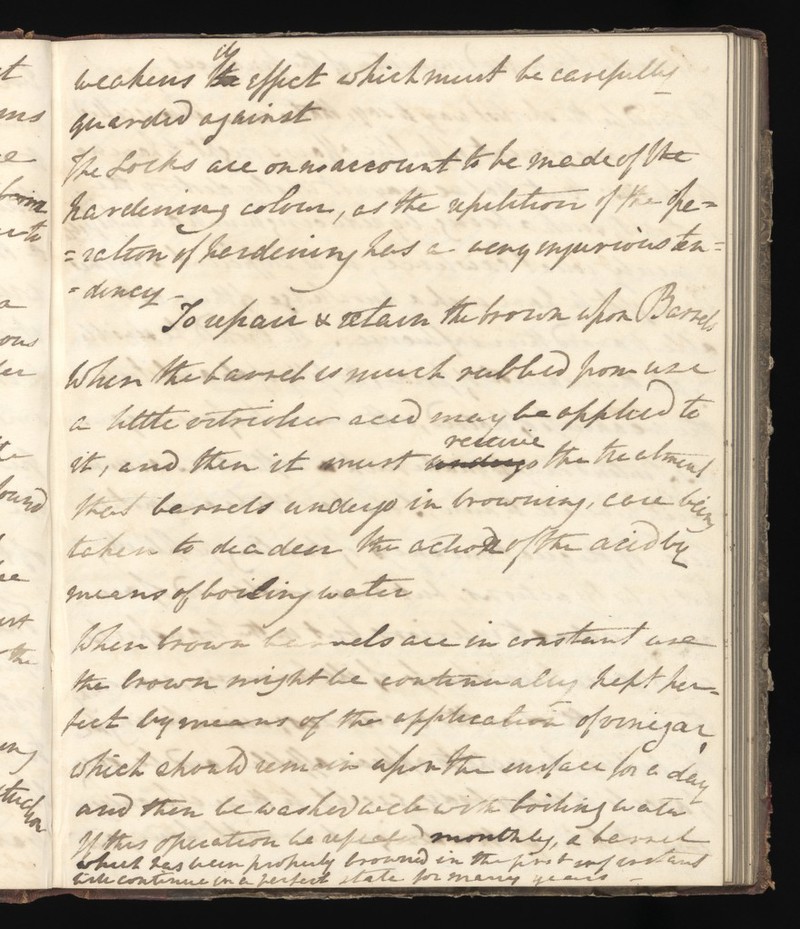 weakens its effect which must be carefully
guarded against
The Locks are on no account to be made of the
hardening colour, as the repetition of the Ope=
=ration of hardening has a very injurious ten=
=dency -
To repair & retain the brown upon Barrels
When the barrel is much rubbed from use
a little vitriolic acid may be applied to
it, and then it must undergo receive the treatment
that barrels undergo in browning, care being
taken to deaden the action of the acid by
means of boiling water
When brown barrels are in constant use
the brown might be continually kept per=
fect by means of the application of vinegar,
which should remain upon the surface for a day
and then be washed well with boiling water
If this operation be repeated monthly, a barrel
which has been properly browned in the first instant
will continue in a perfect state for many years -